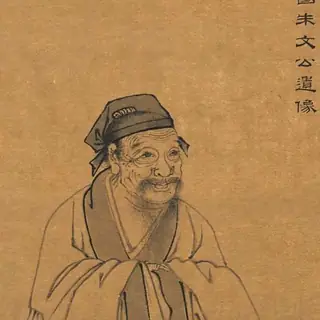 國朱文公遺像